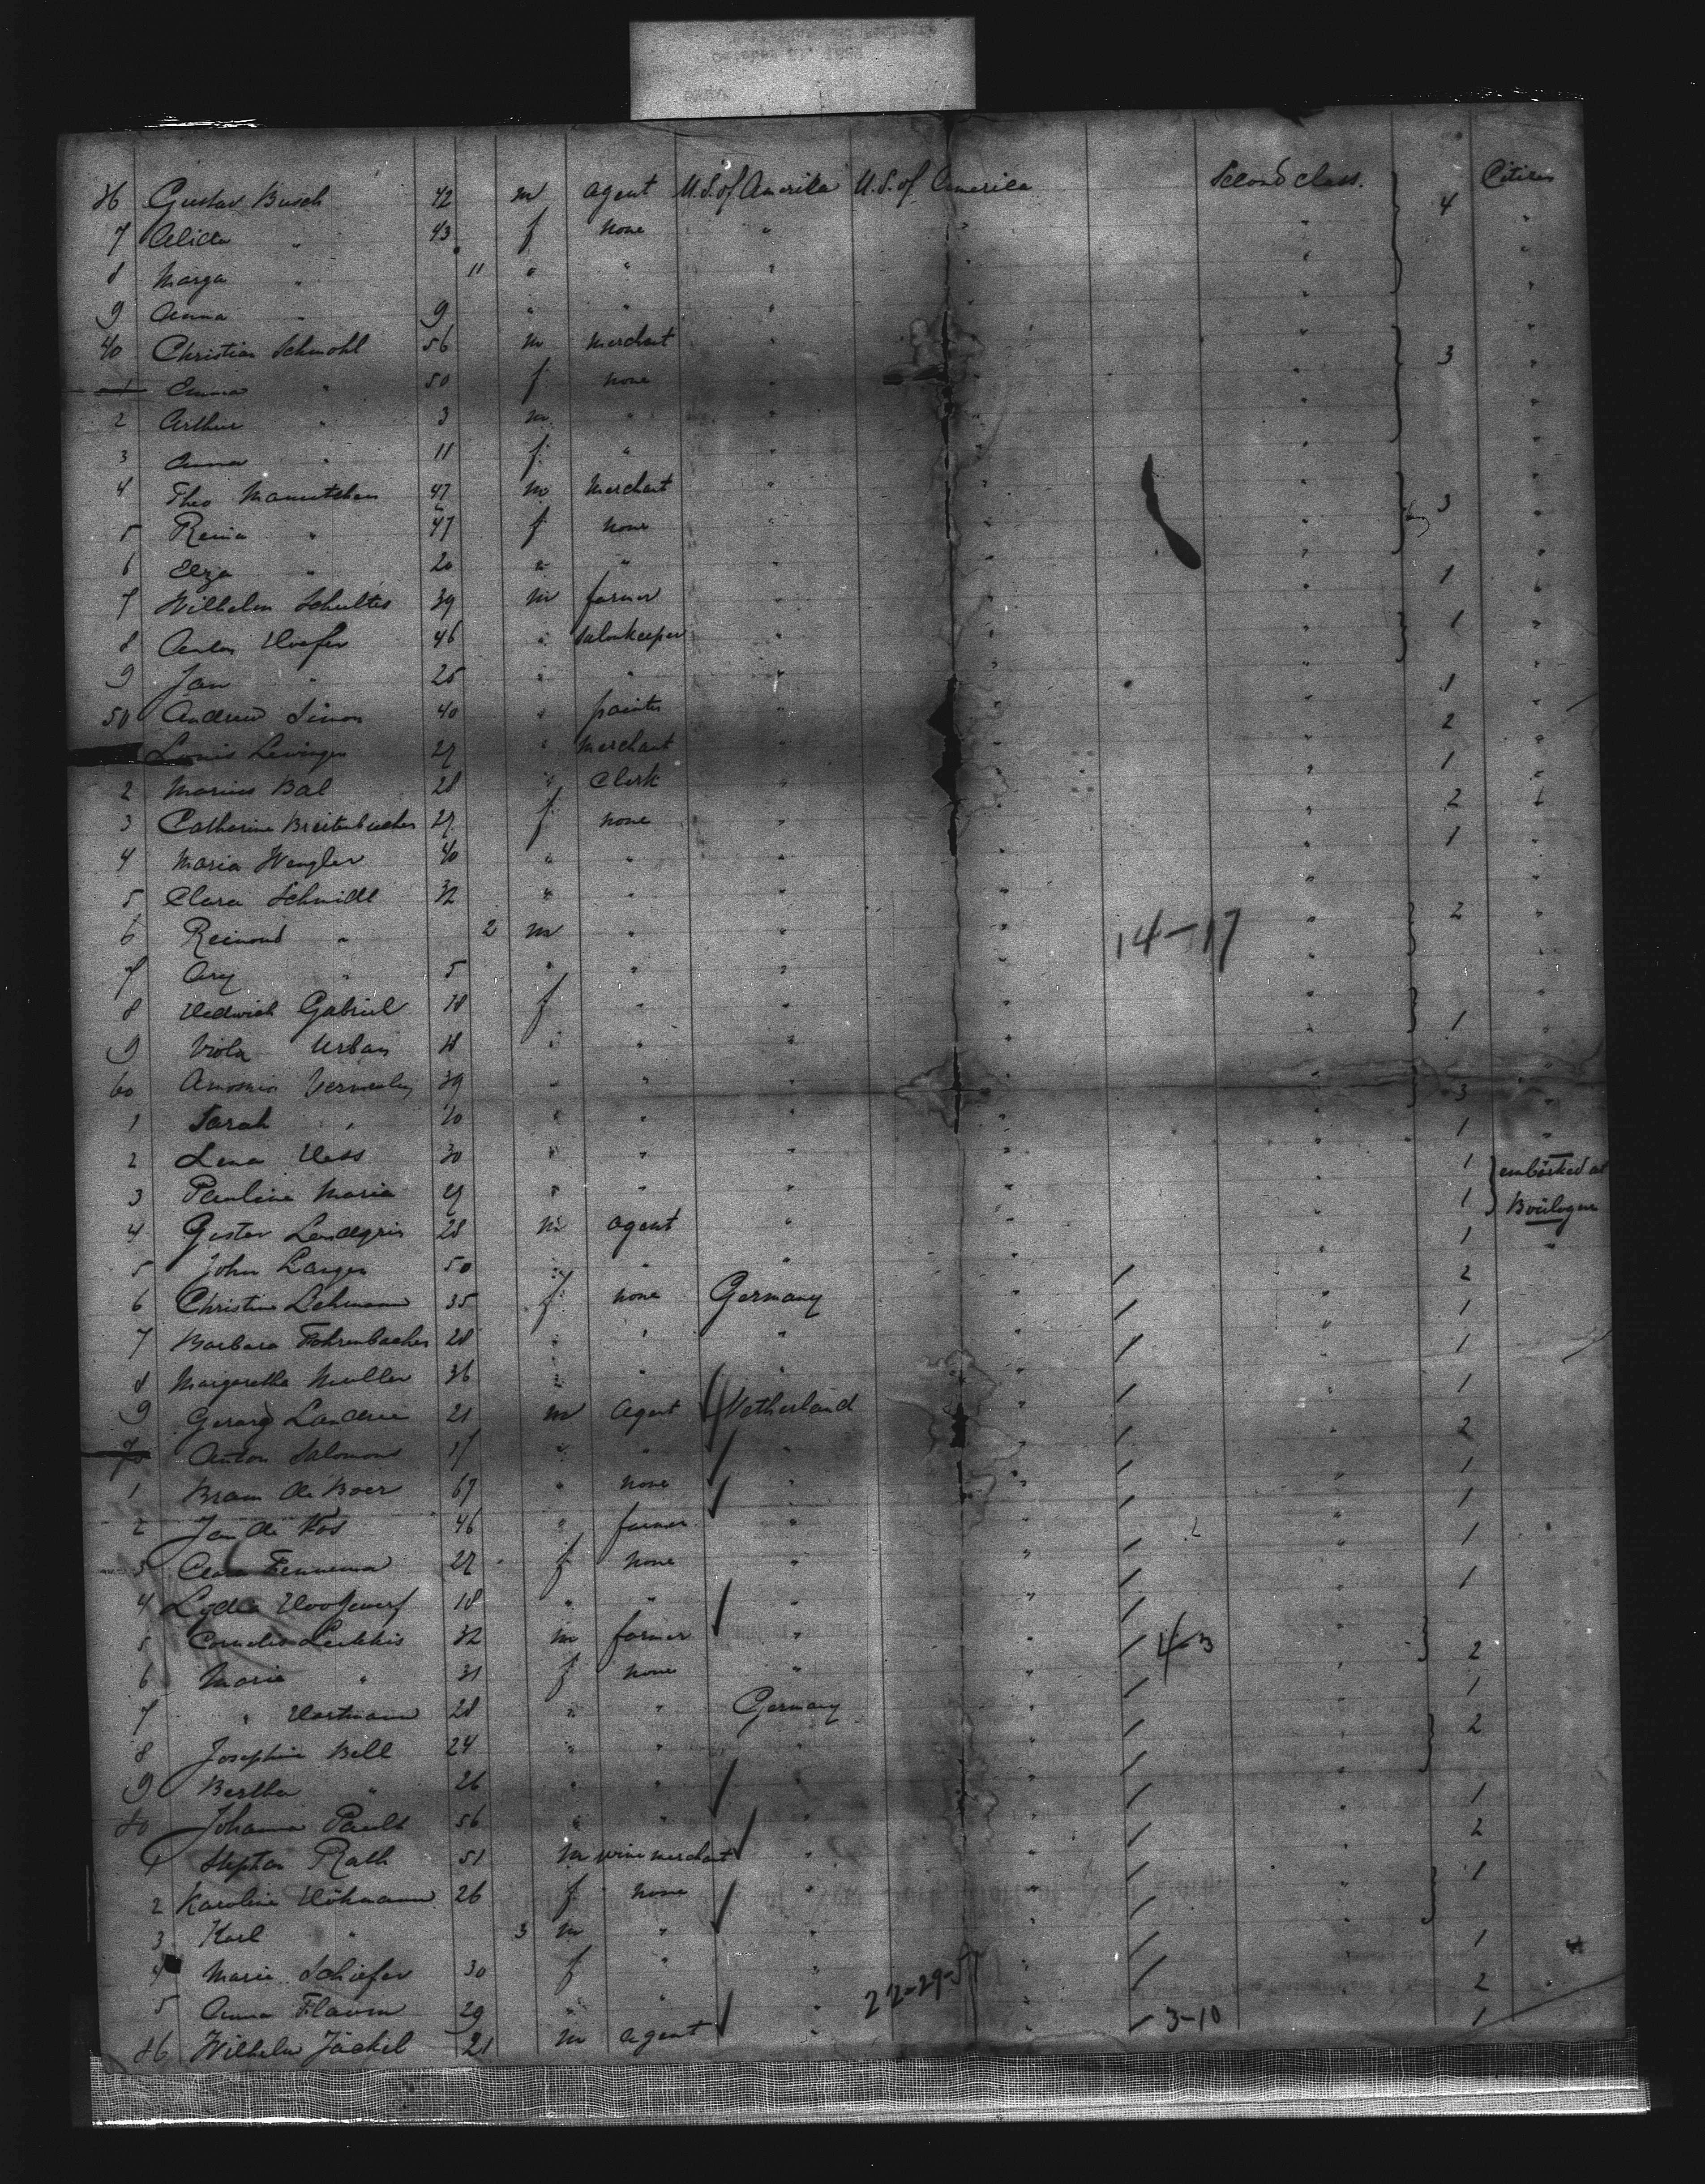 36 Gustav Busch 42 m agent U.S. of Amerika U.S. of America Second class. 4 Citizen
7 Alida " 43 f none " " " "
8 Marga " 11 " " " " " "
9 Anna " 9 " " " " " "
40 Christian Schmohl 56 m merchant " " " 3 "
1 Emma " 50 f none " " " "
2 Arthur " 3 m " " " " "
3 Anna " 11 f " " " " "
4 Theo 47 m merchant " " " 3 "
5 " 47 f none " " " "
6 Elza " 20 " " " " " "
7 Wilhelm Schultes 39 m farmer " " " 1 "
8 Anton Hoefer 46 " salonkeeper " " " 1 "
9 Jan " 25 " " " " " "
50 Andrew Simon 40 " painter " " " 1 "
Louis Levinger 27 " merchant " " " 2 "
2 Marius Bal 28 " Clerk " " " 1 "
3 Catharine Breitenbucher 27 f none " " " 2 "
4 Maria Wengler 40 " " " " " 1 "
5 Clara Schmidt 32 " " " " " "
6 Reimond " 2 m " " " 14-17 " 2 "
7 " 5 " " " " " "
8 Hedwich Gabriel 18 f " " " " "
9 Viola Urban 18 " " " " " 1 "
60 39 " " " " " 3 "
1 Sarah " 10 " " " " " "
2 Lena Hess 30 " " " " " 1 "
3 Pauline Maria 29 " " " " " 1 embarked at
4 Gustav 28 m agent " " " 1 Boulogne
5 John Langer 50 " " " " " 1 "
6 Christine Lehmann 35 f none Germany " " 2
7 Barbara Fohrenbacher 28 " " " " " 1
8 Margaretha Muller 36 " " " " " 1
9 Gerard 21 m Agent Netherland " " 1
70 Anton Salomons 17 " " " " " 2
1 Bram de Boer 67 " none " " " 1
2 Jan de Vos 46 " farmer " " " 1
3 Clara Fennema 27 f none " " " 1
4 Lydia 18 " " " " " 1
5 Cornelis 32 m farmer " " 4-3 "
6 Maria " 31 f none " " " 2
7 " Hartmann 28 " " Germany " " 1
8 Josephine Bell 24 " " " " " 2
9 Bertha " 26 " " " " "
80 Johanna 56 " " " " " 1
1 Stephan Rath 51 m wine merchant " " " 2
2 Karoline Höhmann 26 f none " " " 1
3 Karl " 3 m " " " "
4 Marie Schiefer 30 f " " " " 1
5 Anna 29 " " " 22-29-57 " " 2
86 Wilhelm Jäckel 21 m agent " " 3-10 1